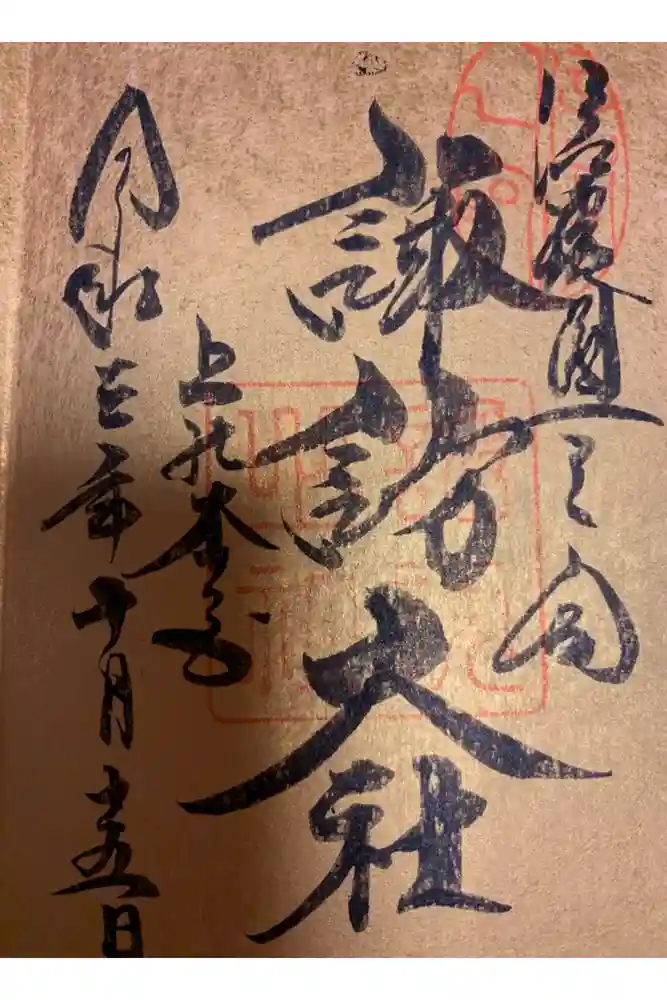 信濃國一之宮
諏訪大社
上社本宮
令和三年十月廿五日